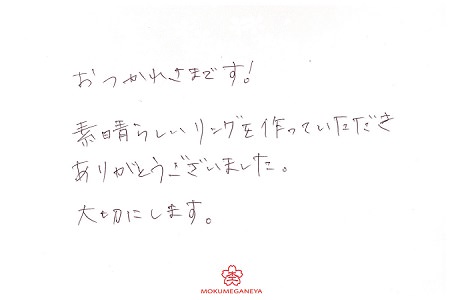 おつかれさまです!
素晴らしいリングを作っていただき
ありがとうございました。
大切にします。
MOKUMEGANEYA